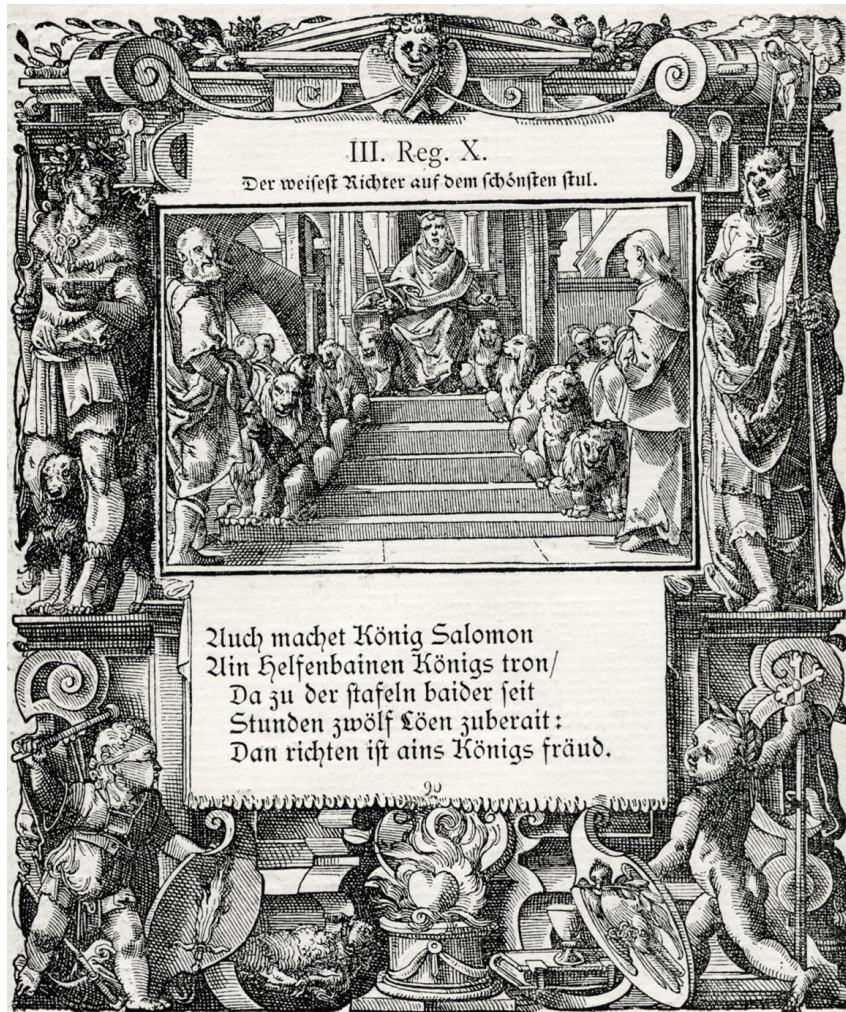 III. Reg. X.
Der weisest Richter auf dem schönsten stul.
Auch machet König Salomon
Ain Helfenbainen Königs tron/
Da zu der stafeln baider seit
Stunden zwölf Löen zuberait:
Dan richten ist ains Königs fräud.